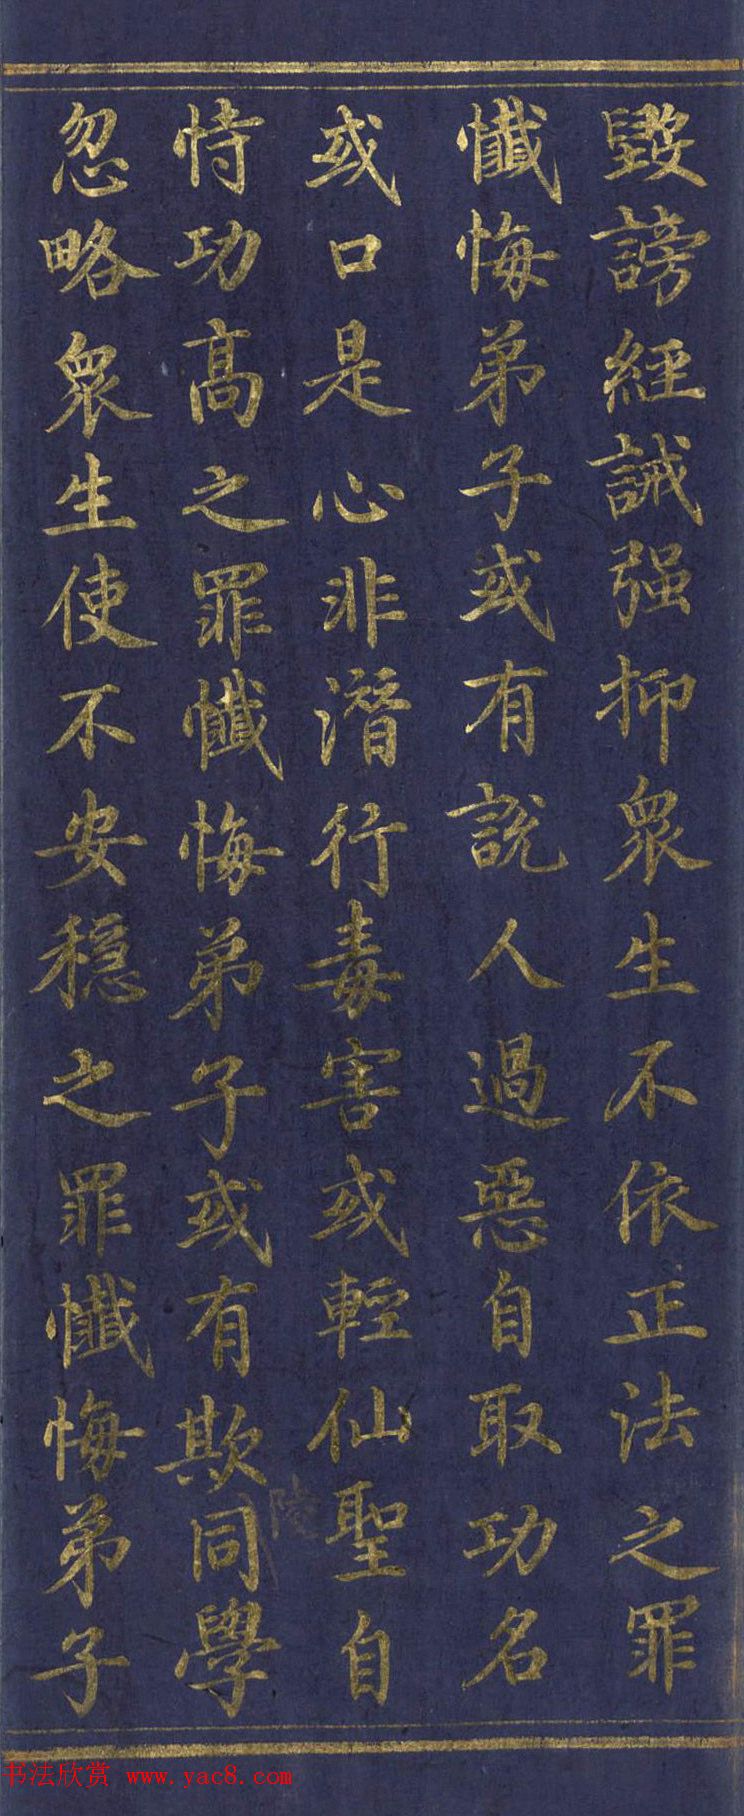 毀謗經誡强抑衆生不依正法之罪
懺悔弟子或有說人過惡自取功名
或口是心非潛行毒害或輕仙聖自
恃功高之罪懺悔弟子或有欺同學
忽略衆生使不安穩之罪懺悔弟子
书法欣赏 www.yac8.com